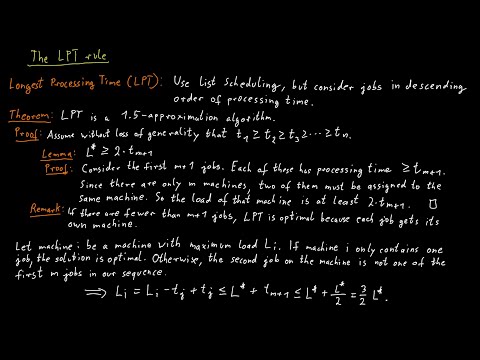 The LPT rule
Longest Processing Time (LPT): Use list scheduling, but consider jobs in descending
order of processing time.
Theorem: LPT is a 1.5-approximation algorithm.
Proof: Assume without loss of generality that t₁ ≥ t₂ ≥ t₃ ≥ ⋯ ≥ tₙ.
Lemma: L* ≥ 2·tₘ₊₁
Proof: Consider the first m+1 jobs. Each of these has processing time ≥ tₘ₊₁.
Since there are only m machines, two of them must be assigned to the
same machine. So the load of that machine is at least 2·tₘ₊₁. □
Remark: If there are fewer than m+1 jobs, LPT is optimal because each job gets its
own machine.
Let machine i be a machine with maximum load Lᵢ. If machine i only contains one
job, the solution is optimal. Otherwise, the second job on the machine is not one of the
first m jobs in our sequence.
⟹ Lᵢ = Lᵢ - tⱼ + tⱼ ≤ L* + tₘ₊₁ ≤ L* + L*/2 = 3/2 L*.